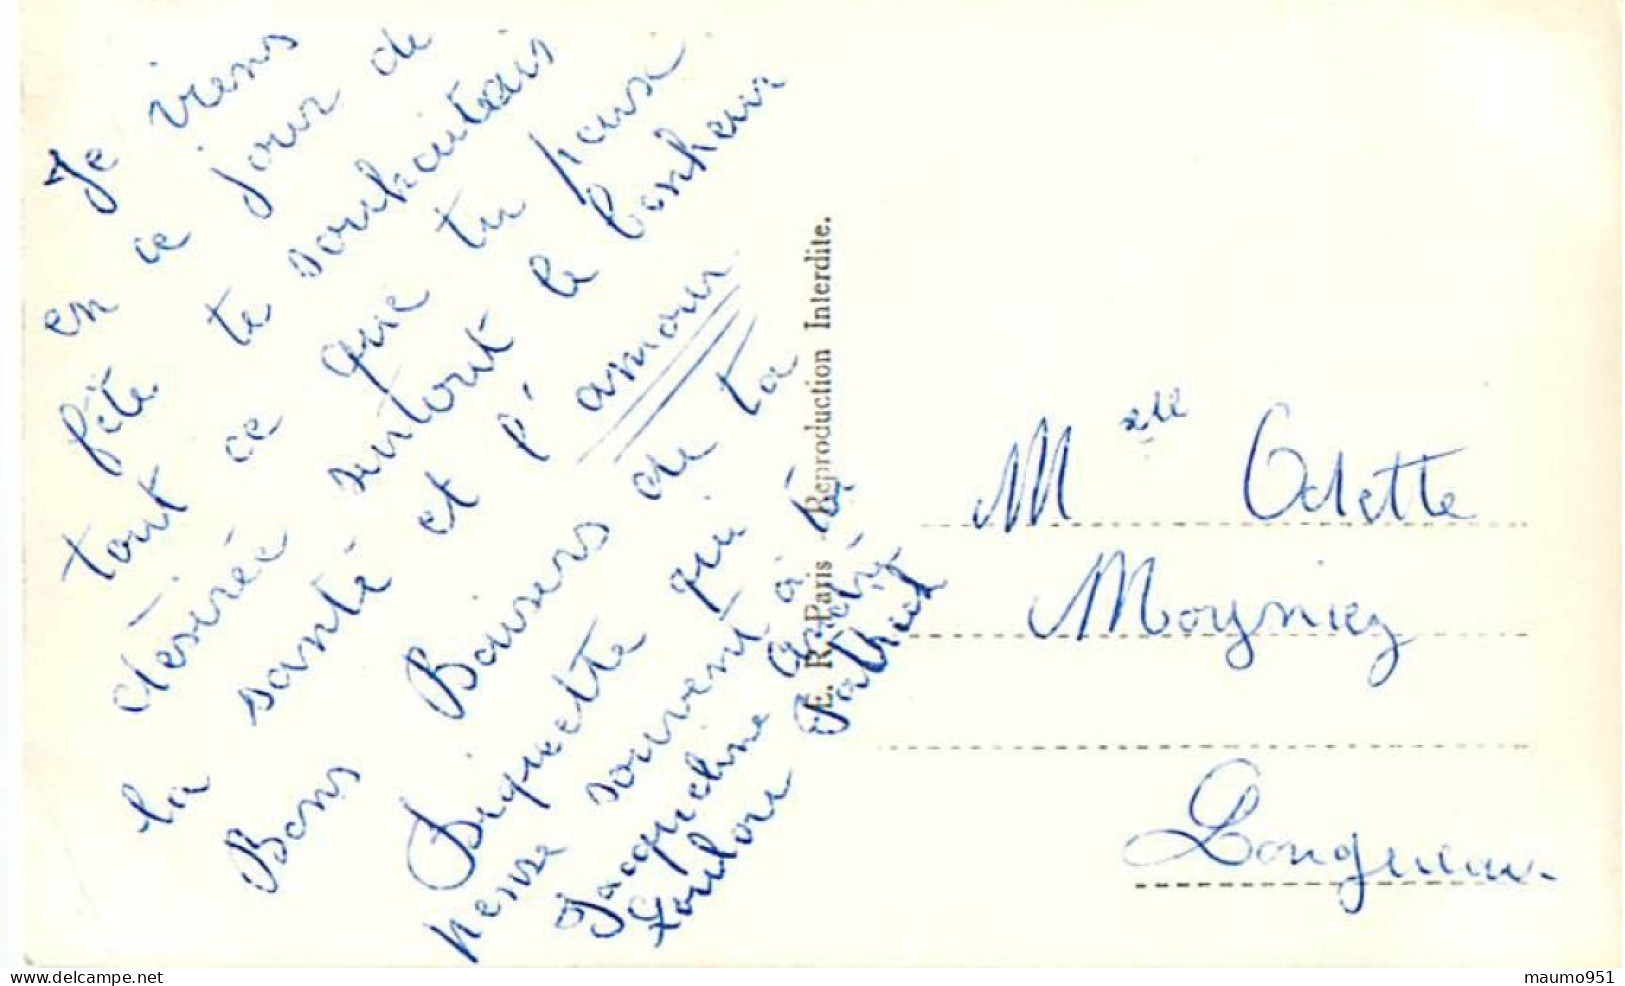 Je viens
en ce jour de
fête te souhaitais
tout ce que tu pense
désirée surtout le bonheur
la santé et l'amour
Bons Baisers de ta
Siquette qui
pense souvent à toi
Jacqueline André
Loulou
E. R. Paris Reproduction Interdite.
Melle Odette
Moyniez
Longueau.
maumo951